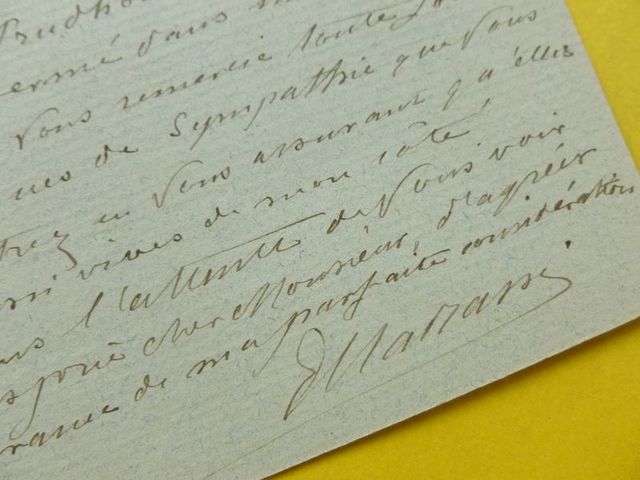 Prudho
ermé dans
Vous remercie toutes
ues de Sympathie que Vous
trez en Vous assurant qu'elles
vives de mon côté,
l'attente de Vous voir
prie cher Monsieur, d'agréer
rance de ma parfaite considération